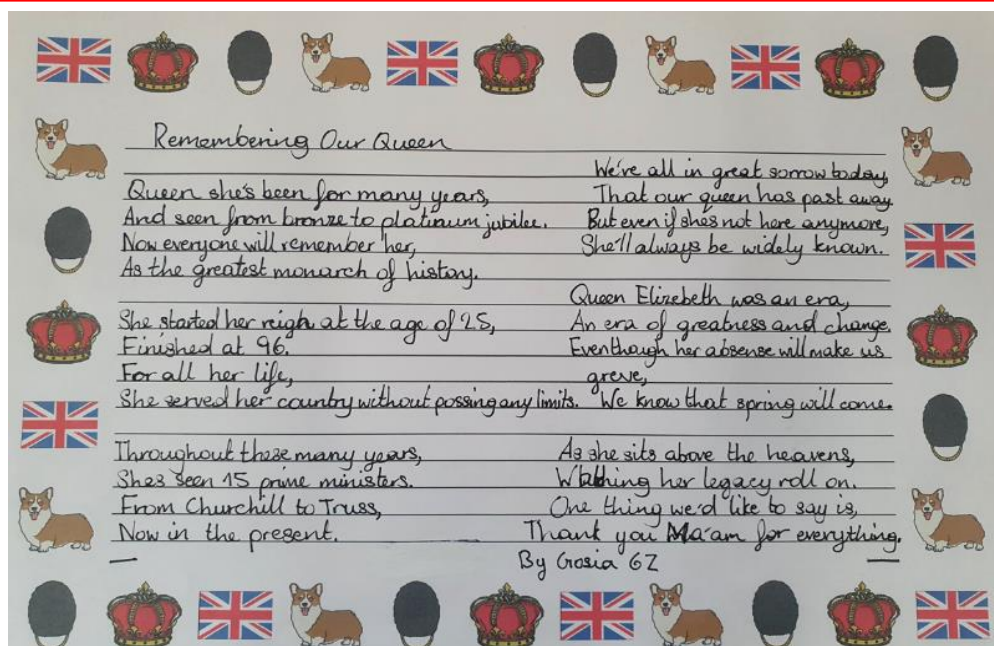 Remembering Our Queen
Queen she's been for many years,
And seen from bronze to platinum jubilee.
Now everyone will remember her,
As the greatest monarch of history.
She started her reigh at the age of 25,
Finished at 96.
For all her life,
She served her country without possing any limits.
Throughout these many years,
Shes seen 15 prime ministers.
From Churchill to Truss,
Now in the present.
We're all in great sorrow today,
That our queen has past away.
But even if she's not here anymore,
She'll always be widely known.
Queen Elizebeth was an era,
An era of greatness and change.
Eventhough her absense will make us
greve,
We know that spring will come.
As she sits above the heavens,
Watching her legacy roll on.
One thing we'd like to say is,
Thank you Ma'am for everything.
By Gosia 6Z